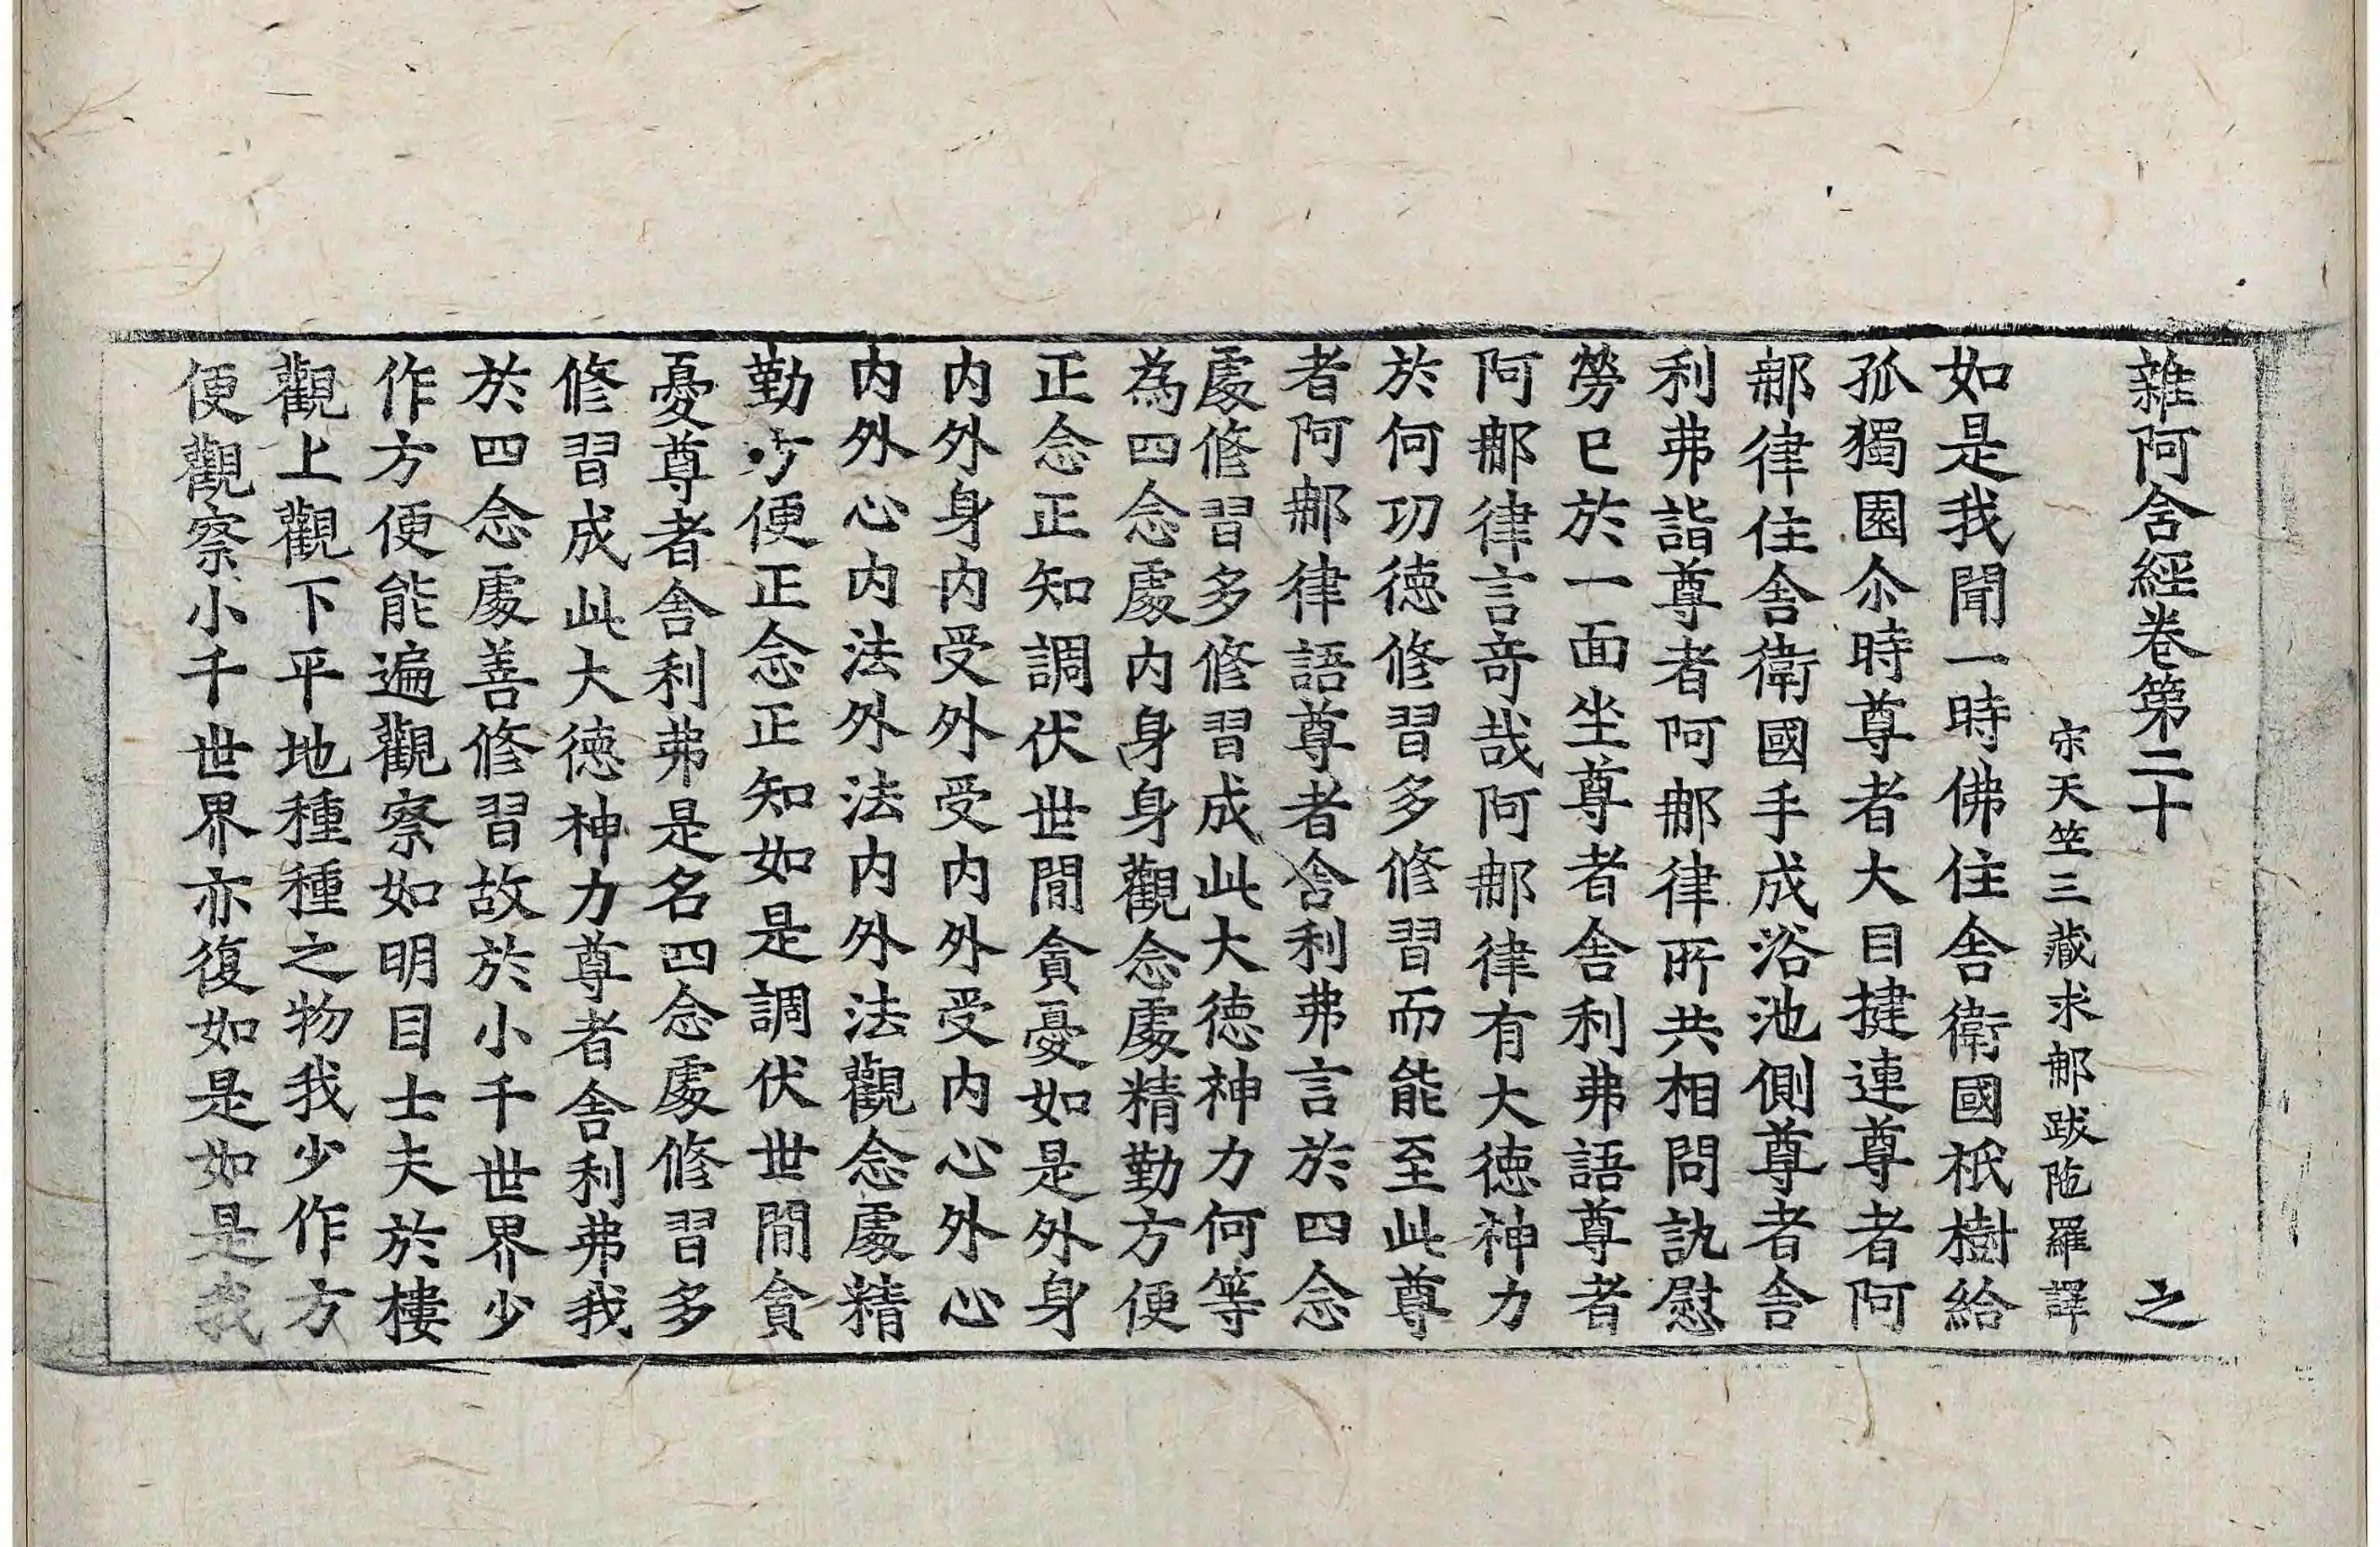 雜阿含經卷第二十 之
宋天竺三藏求那跋陁羅譯
如是我聞一時佛住舍衛國祇樹給
孤獨園尒時尊者大目揵連尊者阿
那律住舍衛國手成浴池側尊者舍
利弗詣尊者阿那律所共相問訊慰
勞已於一面坐尊者舍利弗語尊者
阿那律言奇哉阿那律有大德神力
於何功德修習多修習而能至此尊
者阿那律語尊者舍利弗言於四念
處修習多修習成此大德神力何等
為四念處内身身觀念處精勤方便
正念正知調伏世閒貪憂如是外身
内外身内受外受内外受内心外心
内外心内法外法内外法觀念處精
勤方便正念正知如是調伏世閒貪
憂尊者舍利弗是名四念處修習多
修習成此大德神力尊者舍利弗我
於四念處善修習故於小千世界少
作方便能遍觀察如明目士夫於樓
觀上觀下平地種種之物我少作方
便觀察小千世界亦復如是如是我